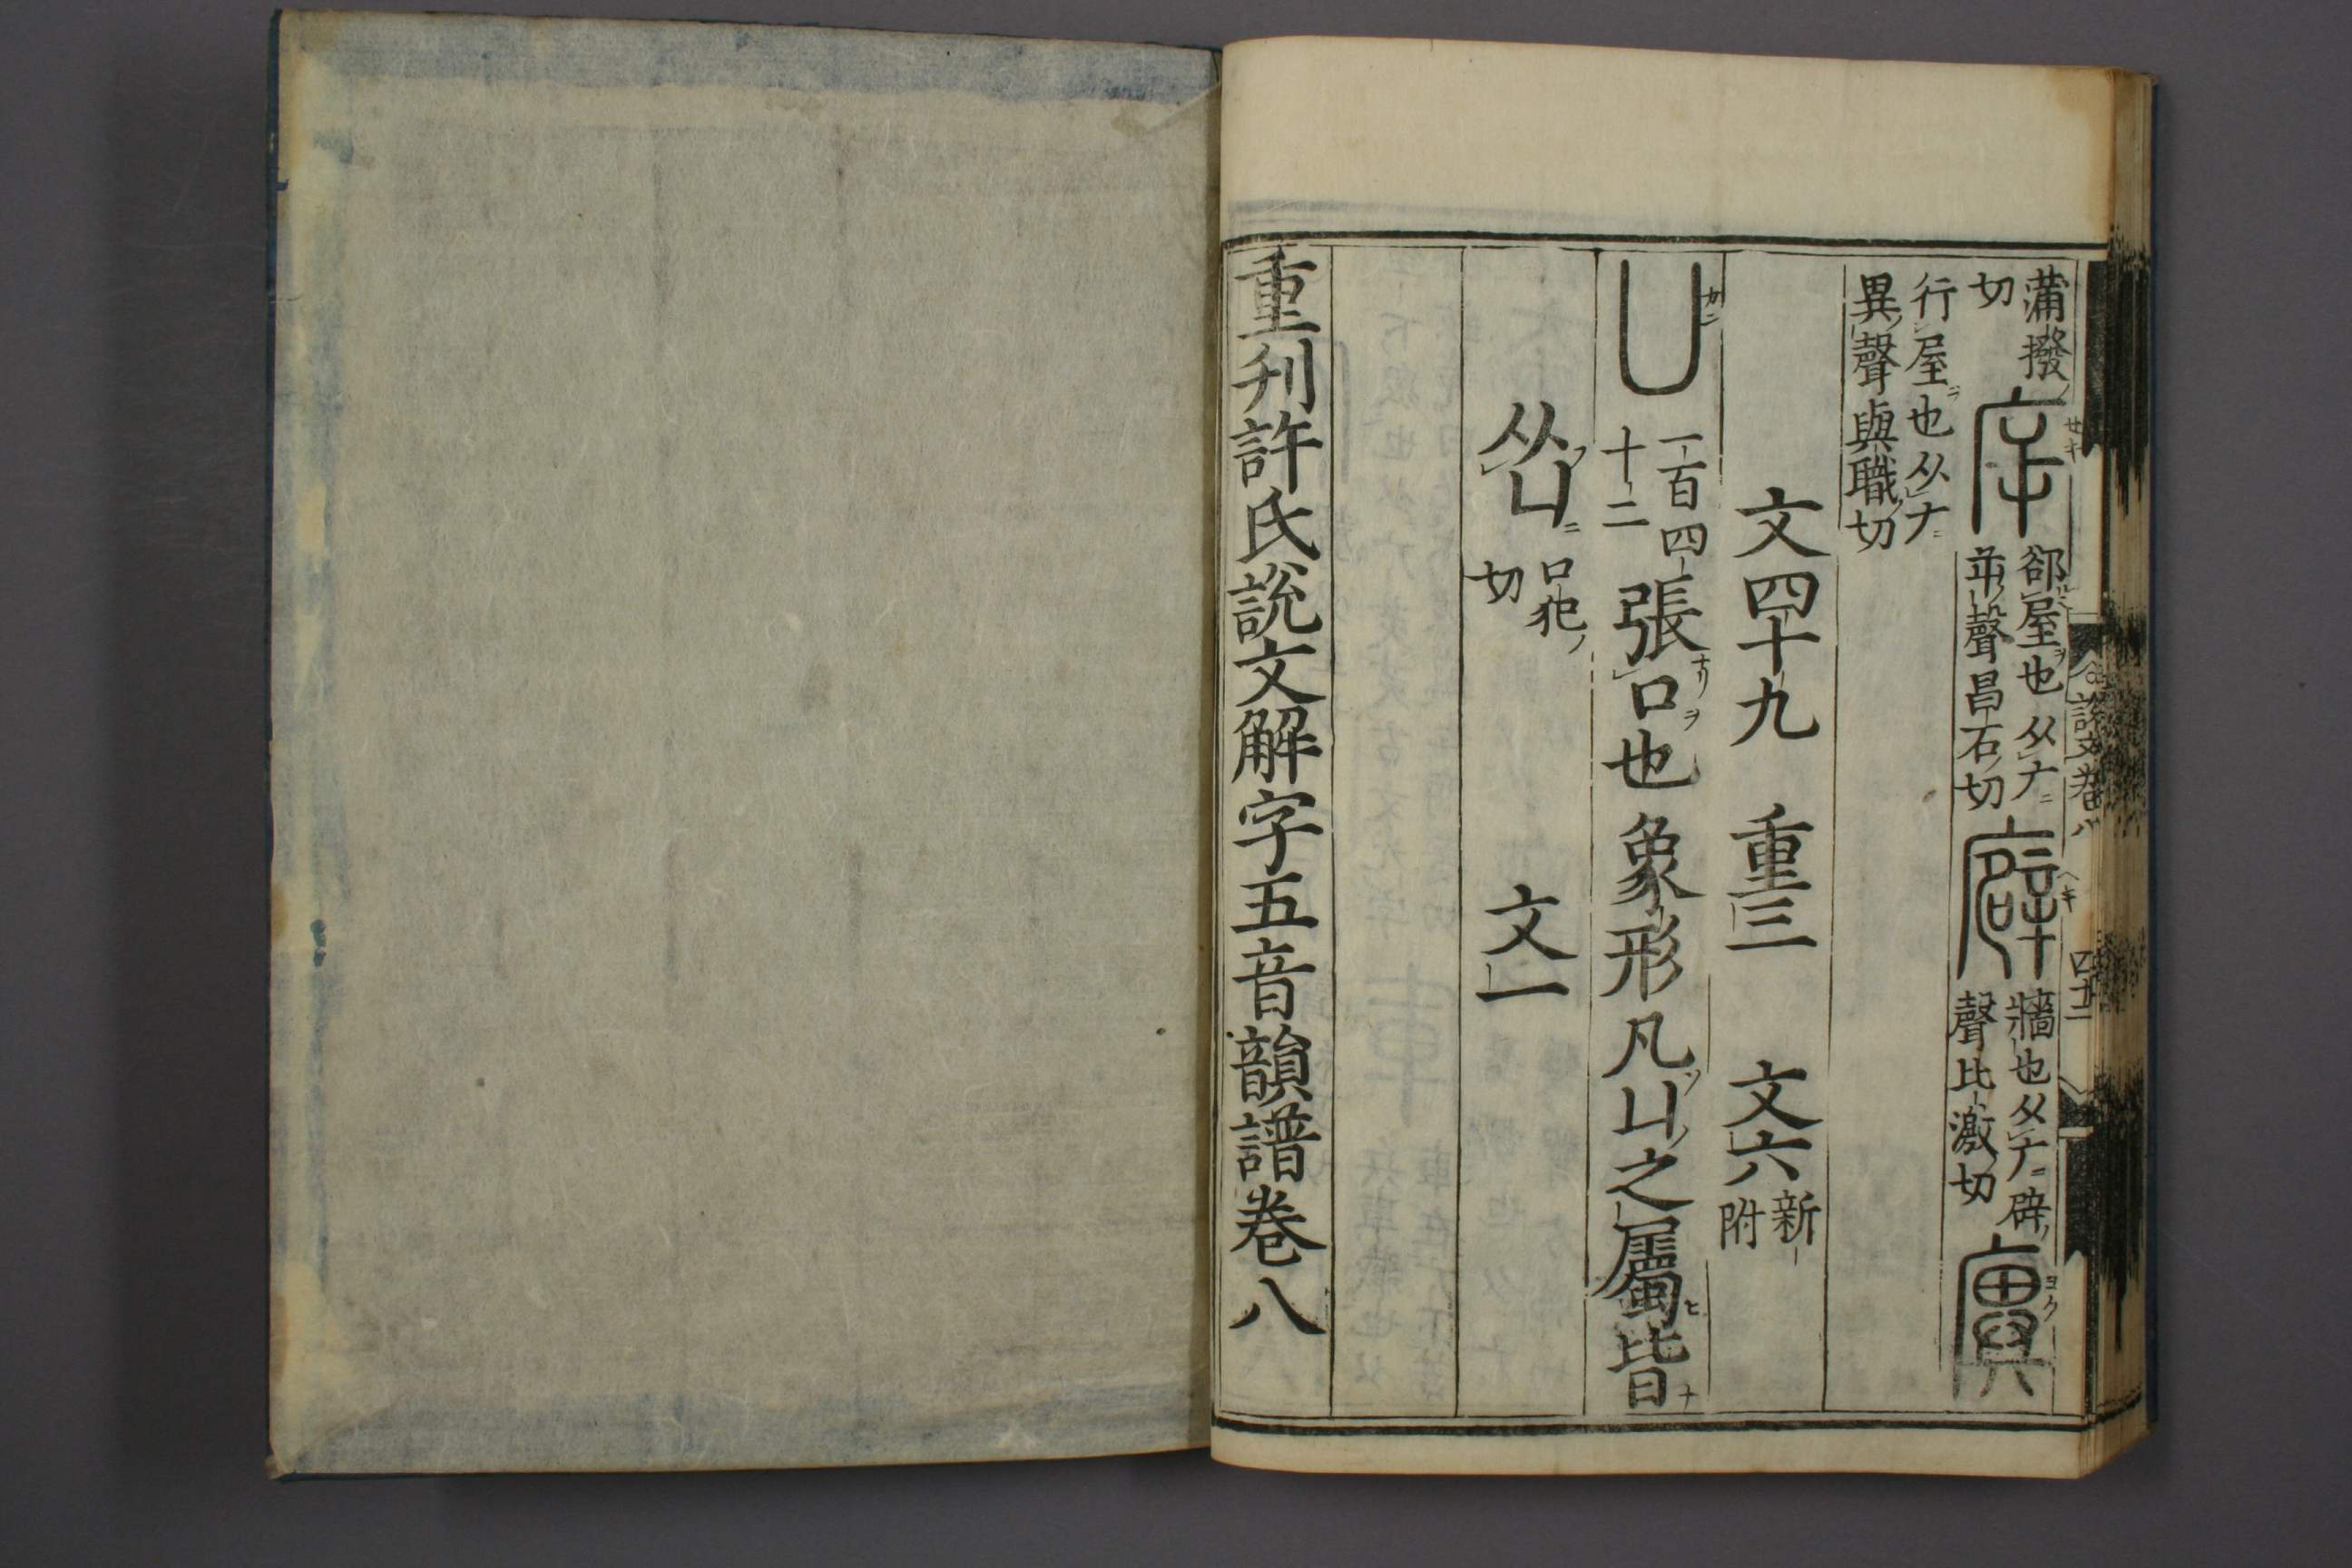 蒲撥切 㡿 郤屋也从广屰聲昌石切 廦 牆也从广辟聲比激切 廙
行屋也从广異聲與職切
文四十九 重三 文六新附
凵 一百四十二 張口也象形凡凵之屬皆
从凵 口犯切 文一
重刋許氏說文解字五音韻譜卷八
說文卷八 四十二